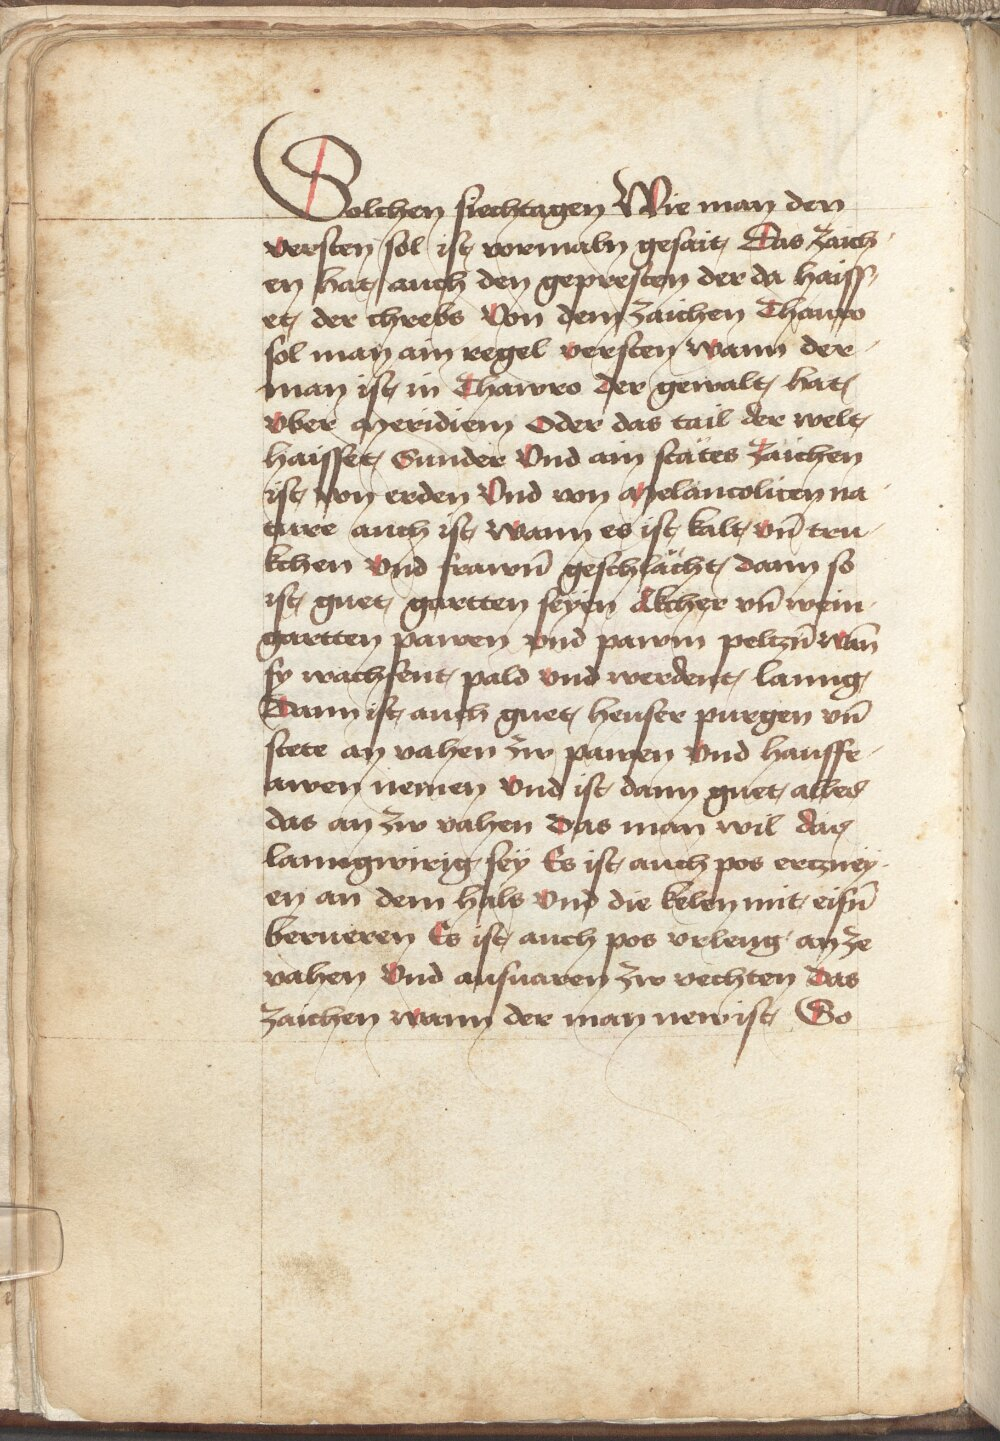 Solchen siechtagen Wie man den
versten sol ist vormaln gesait Das zaich
en hat auch den gepresten der da haiss
et der chrebs Von dem zaichen Thauro
sol man ain regel versten wann der
man ist in Thawro der gewalt hat
vber meridiem Oder das tail der welt
haisset Sunder Vnd ain stätes zaichen
ist von erden Vnd von melancolicen na
ture auch ist wann es ist kalt vn̄ tru
kchen vnd frawn̄ geschlächt dann so
ist guet gartten seyen äkcher vn̄ wein
gartten pawen vnd pawm peltzn̄ wan̄
sy wachsent pald vnd werdent lanng
Dann ist auch guet heuser purgen vn̄
stete an vahen zw pawen Vnd hausfr
awen nemen Vnd ist dann guet alles
das an zw vahen Das man wil das
lanngwirig sey Es ist auch pos ertzney
en an dem hals vnd die kelen mit eisn̄
berueren Es ist auch pos vrleug an ze
vahen Vnd ausuaren zw vechten Das
zaichen wann der man new ist So